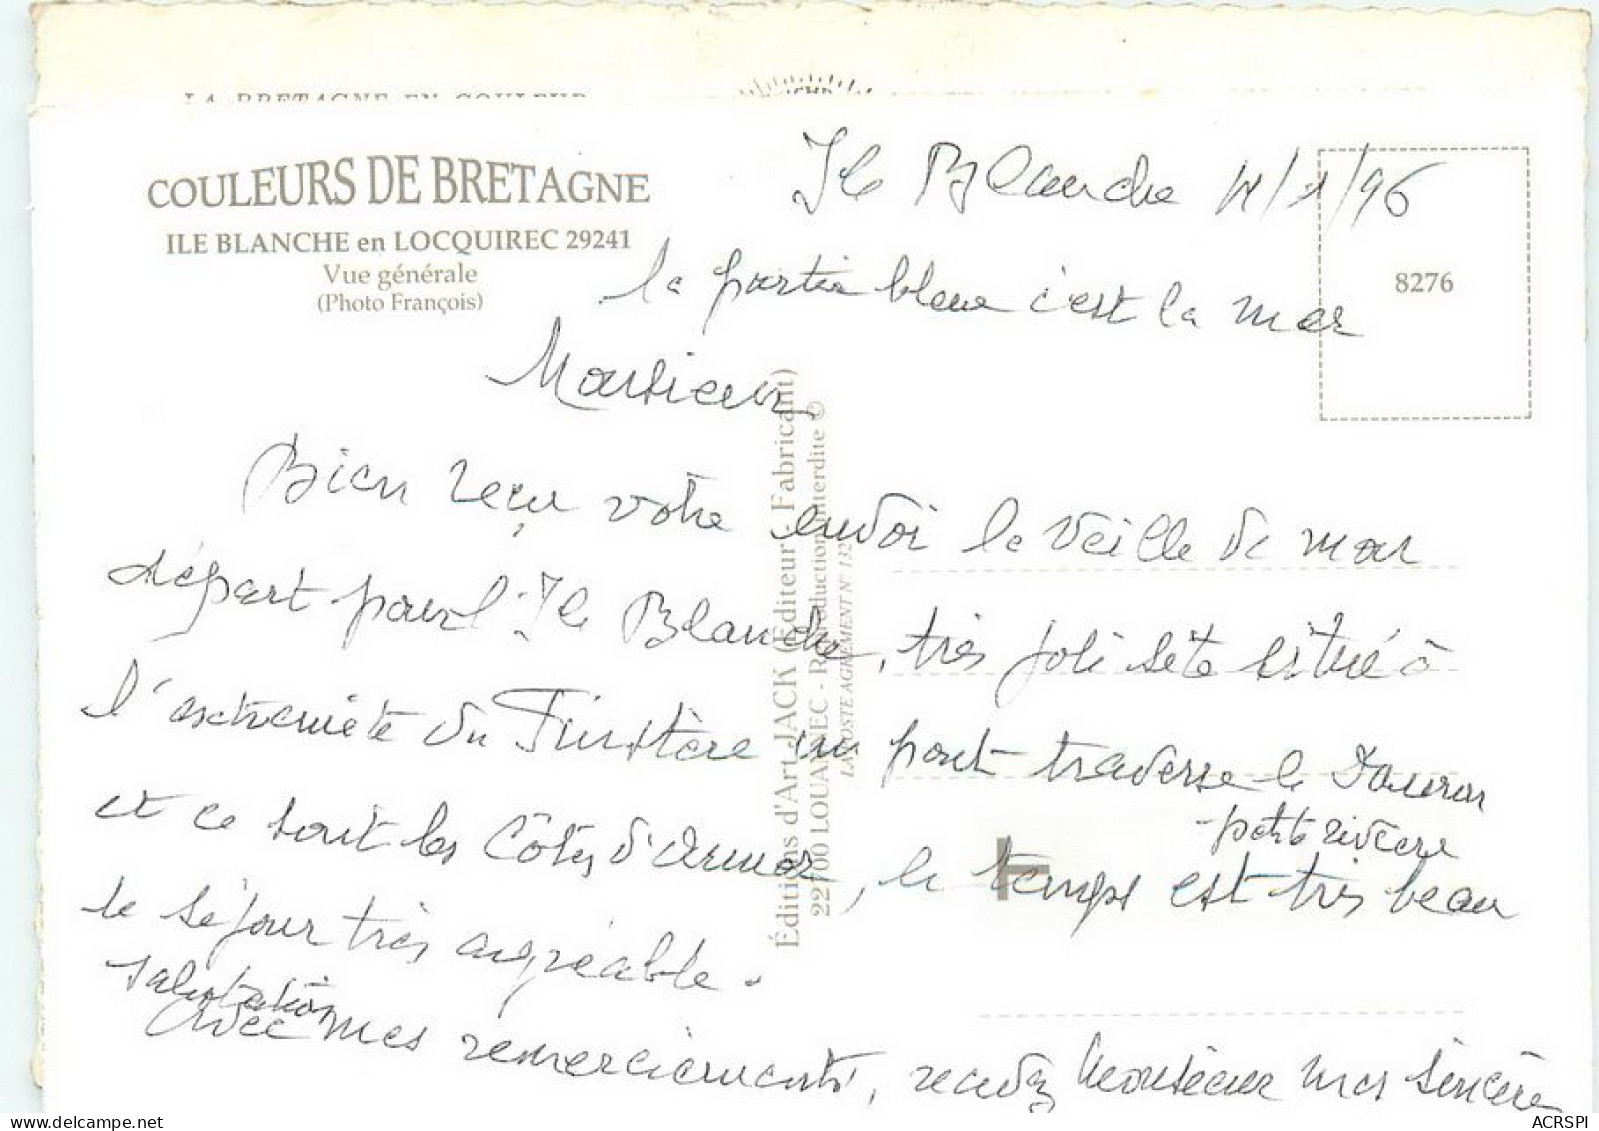 COULEURS DE BRETAGNE
ILE BLANCHE en LOCQUIREC 29241
Vue générale
(Photo François)
8276
Ile Blanche /96
la partie bleue c'est la mer
Monsieur
Bien reçu votre envoi la veille de mon
départ pour l'Ile Blanche, très joli site situé à
l'extremité du Finistère un pont traverse le Douron
petite rivière
et ce sont les Côtes d'Armor, le temps est très beau
le séjour très agréable.
Avec mes remerciements, Monsieur mes sincère
salutation
Éditions d'Art JACK (Éditeur - Fabricant)
22700 LOUANNEC - Reproduction interdite ©
LA POSTE AGREMENT N° 132